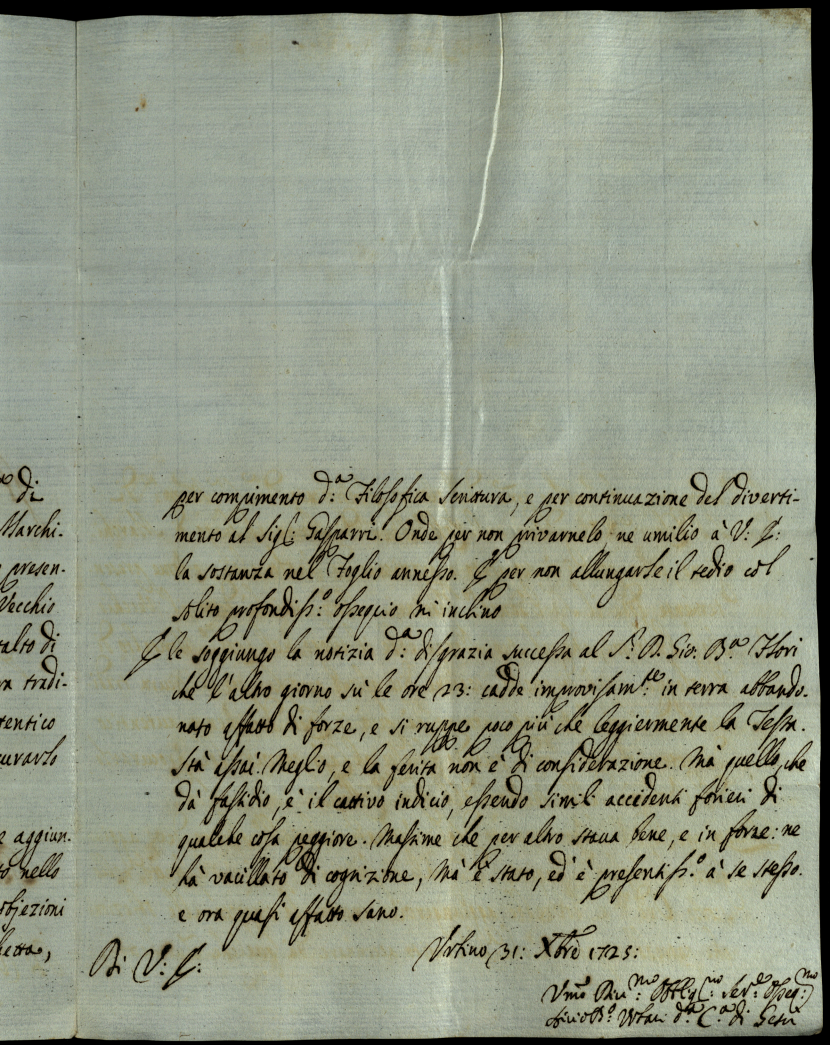 di
Marchi-
presen-
Vecchio
talto di
ra tradi-
tentico
curarlo
e aggiun-
to nello
objezioni
per compimento d:ª Filosofica Scrittura, e per continuazione del diverti-
mento al Sigʳ: Gasparri. Onde per non privarnelo ne umilio à V: E:
la sostanza nel Foglio annesso. E per non allungarle il tedio col
solito profondiss:º ossequio mi inchino
E le soggiungo la notizia d:ª disgrazia successa al S.ʳ D. Gio: B.ª Flori
che l'altro giorno sù le ore 23: cadde improvisam:ᵗᵉ in terra abbando-
nato affatto di forze, e si ruppe poco più che leggiermente la Testa.
Stà assai Meglio, e la ferita non è di considerazione. Mà quello, che
dà fastidio, è il cattivo indicio, essendo simili accidenti forieri di
qualche cosa peggiore. Massime che per altro stava bene, e in forze: ne
hà vacillato di cognizione, mà è stato, ed è presentiss:º à se stesso.
e ora quasi affatto sano.
Di V: E:
Urbino 31: Xbre 1725:
Umo Divmo Obblig:mo Ser.e osseq:mo
d.ª C.ª di Gesù